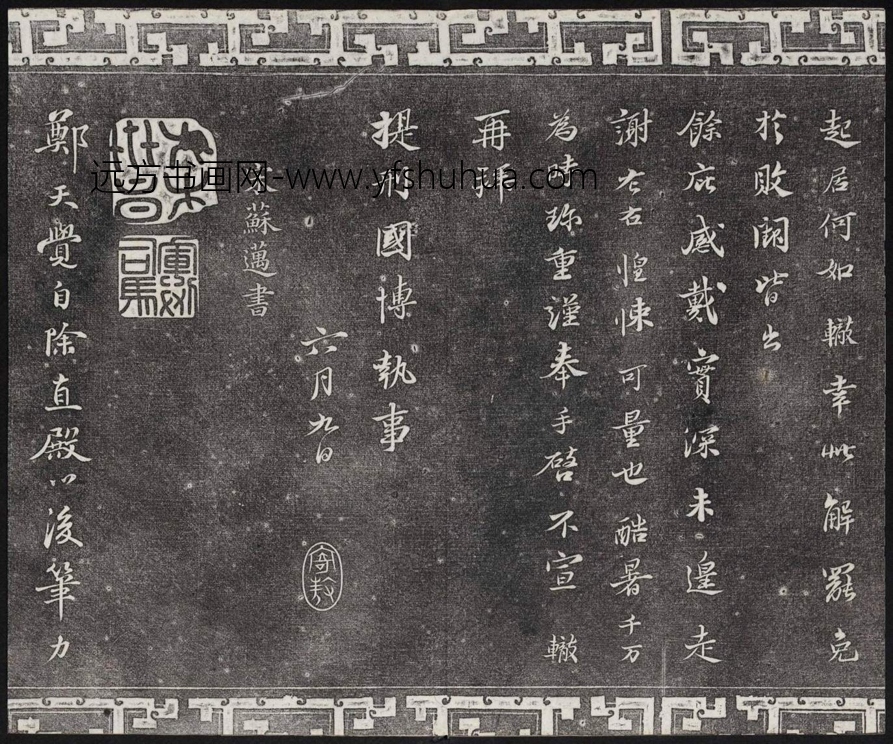 起居何如轍幸此解罷免
於敗闕皆出
餘庇感戴實深未遑走
謝左右惶悚可量也酷暑千万
為時珍重謹奉手啓不宣轍
再拜
提刑國博執事
六月九日
蘇邁書
鄭天覺自除直殿以後筆力
远方书画网-www.yfshuhua.com